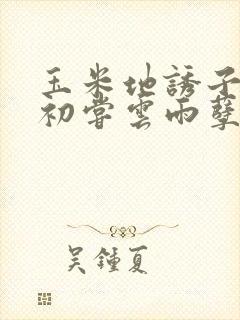 玉米地誘子
初嘗雲雨孽
吳鍾夏